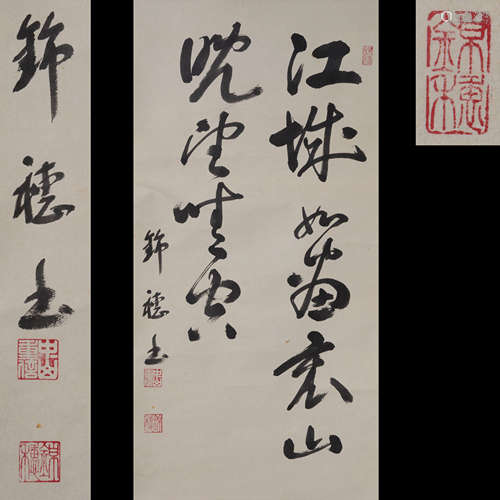 江城如畫裏山
晚望晴空
錦穗書
錦穗書